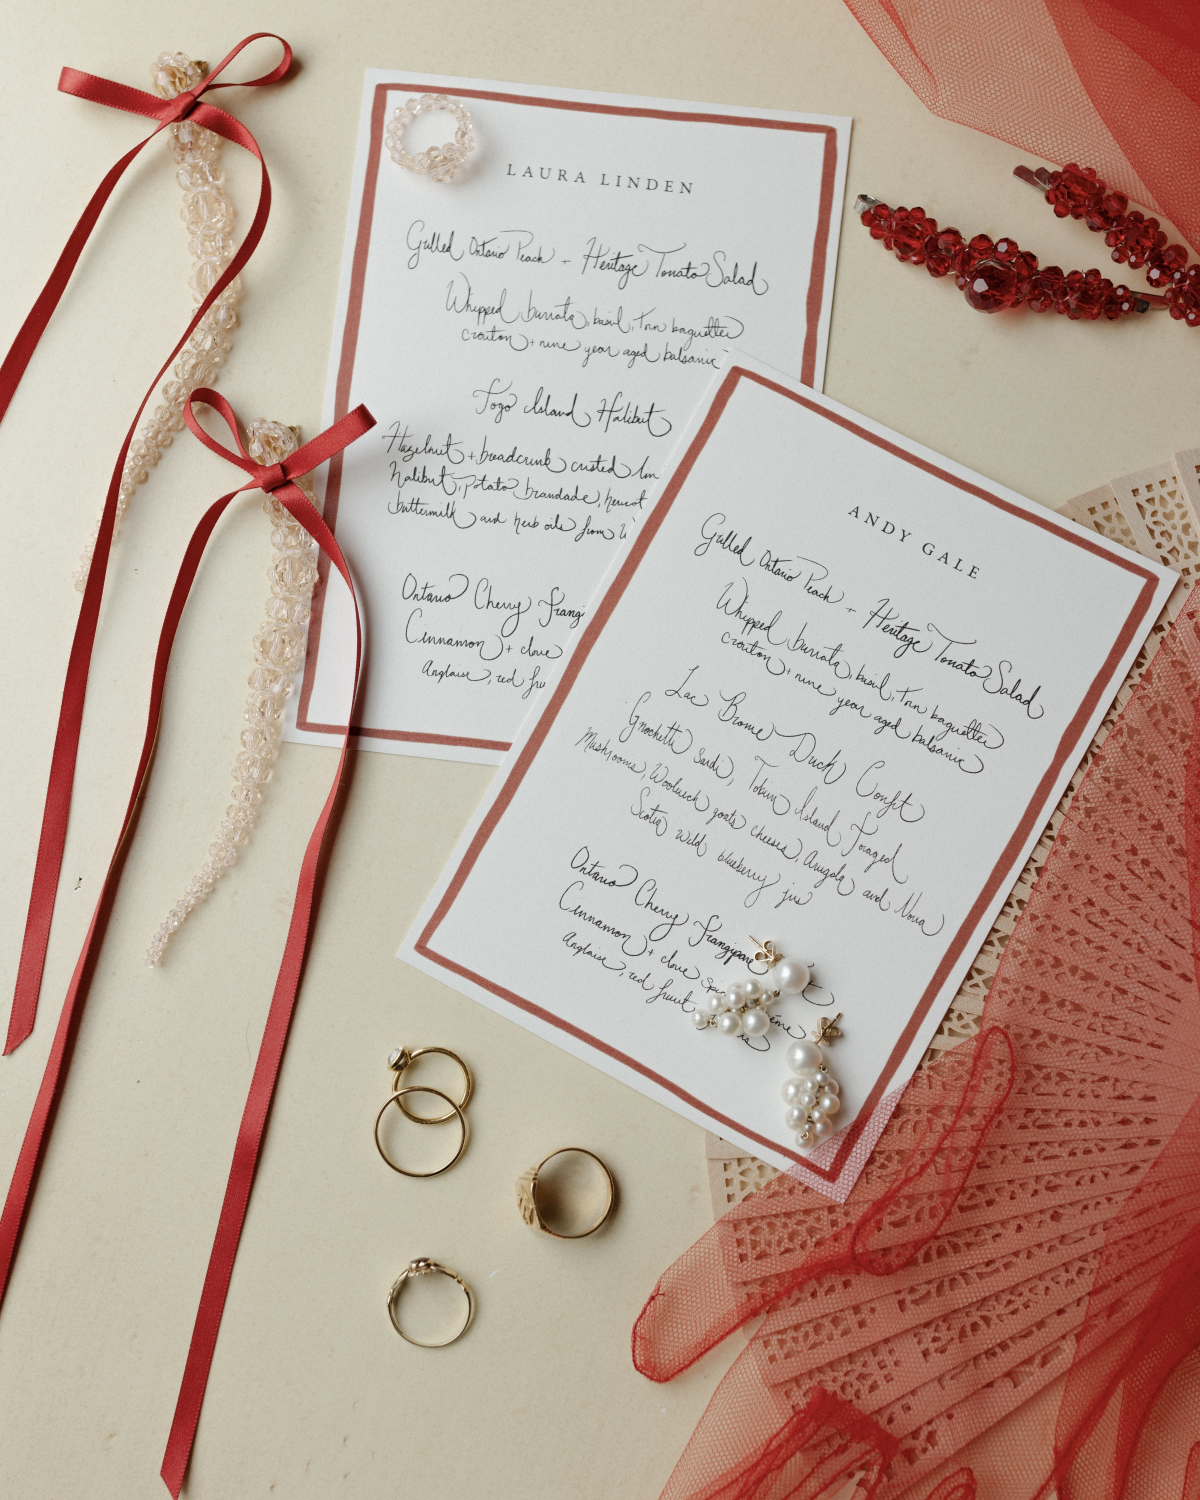 LAURA LINDEN
Grilled Ontario Peach + Heritage Tomato Salad
Whipped burrata, basil, torn baguette
crouton + nine year aged balsamic
Fogo Island Halibut
Hazelnut + breadcrumb crusted
halibut, potato brandade,
buttermilk and herb oils from
Ontario Cherry
Cinnamon + clove
Anglaise, red
ANDY GALE
Grilled Ontario Peach + Heritage Tomato Salad
Whipped burrata, basil, torn baguette
crouton + nine year aged balsamic
Lac Brome Duck Confit
Gnochetti Sardi, Tobin Island Foraged
Mushrooms, Woolwich goats cheese, Arugola and Nova
Scotia wild blueberry jus
Ontario Cherry
Cinnamon + clove
Anglaise, red fruit